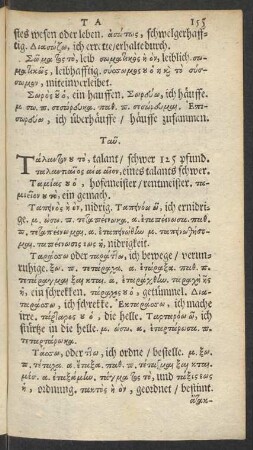 T A 155
stes wesen oder leben. ἄσωτος, schwelgerhaff-
tig. Διασώζω, ich errette/erhalte durch.
Σῶμα τος τὸ, leib σωματικὸς ὴ ὸν, leiblich σω-
ματικῶς, leibhafftig. σύσσωμος ὁ ἡ κὶ τὸ σύσ-
σωμον, miteinverleibet.
Σωρὸς οῦ ὁ, ein hauffen. Σωρεύω, ich häuffe.
μ. σω. π. σεσώρευκα. παθ. π. σεσώρευμαι. Ἐπι-
σωρεύω, ich überhäuffe/häuffe zusammen.
Ταῦ.
Τάλαντον ου τὸ, talant/schwer 125 pfund.
ταλαντιαῖος αία αῖον, eines talants schwer.
Ταμίας ου ὁ, hofemeister/rentmeister. τα-
μιεῖον ου τὸ, ein gemach.
Ταπηνὸς ὴ ὸν, nidrig. Ταπηνόω ῶ, ich ernidri-
ge. μ. ώσω. π. τεταπείνωκα. α. ἐταπείνωσα. παθ.
π. τεταπείνωμαι. α. ἐταπεινώθην. μ. ταπεινωθήσο-
μαι. ταπείνωσις εως ἡ, nidrigkeit.
Ταράσσω oder ταράττω, ich bewege/verun-
ruhige. ξω. π. τετάραχα. α. ἐτάραξα. παθ. π.
τετάραγμαι ξαι κται. α. ἐταράχθην. ταραχὴ ῆς
ἡ, ein schrekken. τάραχος ου ὁ, getümmel. Δια-
ταράσσω, ich schrekke. Ἐκταράσσω, ich mache
irre. τάρταρος ου ὁ, die helle. Ταρταρόω ῶ, ich
stürtze in die helle. μ. ώσω. α. ἐταρτάρωσα. π.
τεταρτάρωκα.
Τάσσω, oder ττω, ich ordne/bestelle. μ. ξω.
π. τέταχα. α. ἔταξα. παθ. π. τέταγμαι ξαι κται.
μέσ. α. ἐταξάμην. τάγμα τος τὸ, und τάξις εως
ἡ, ordnung. τακτὸς ὴ ὸν, geordnet/bestimt.
ἄτακ-